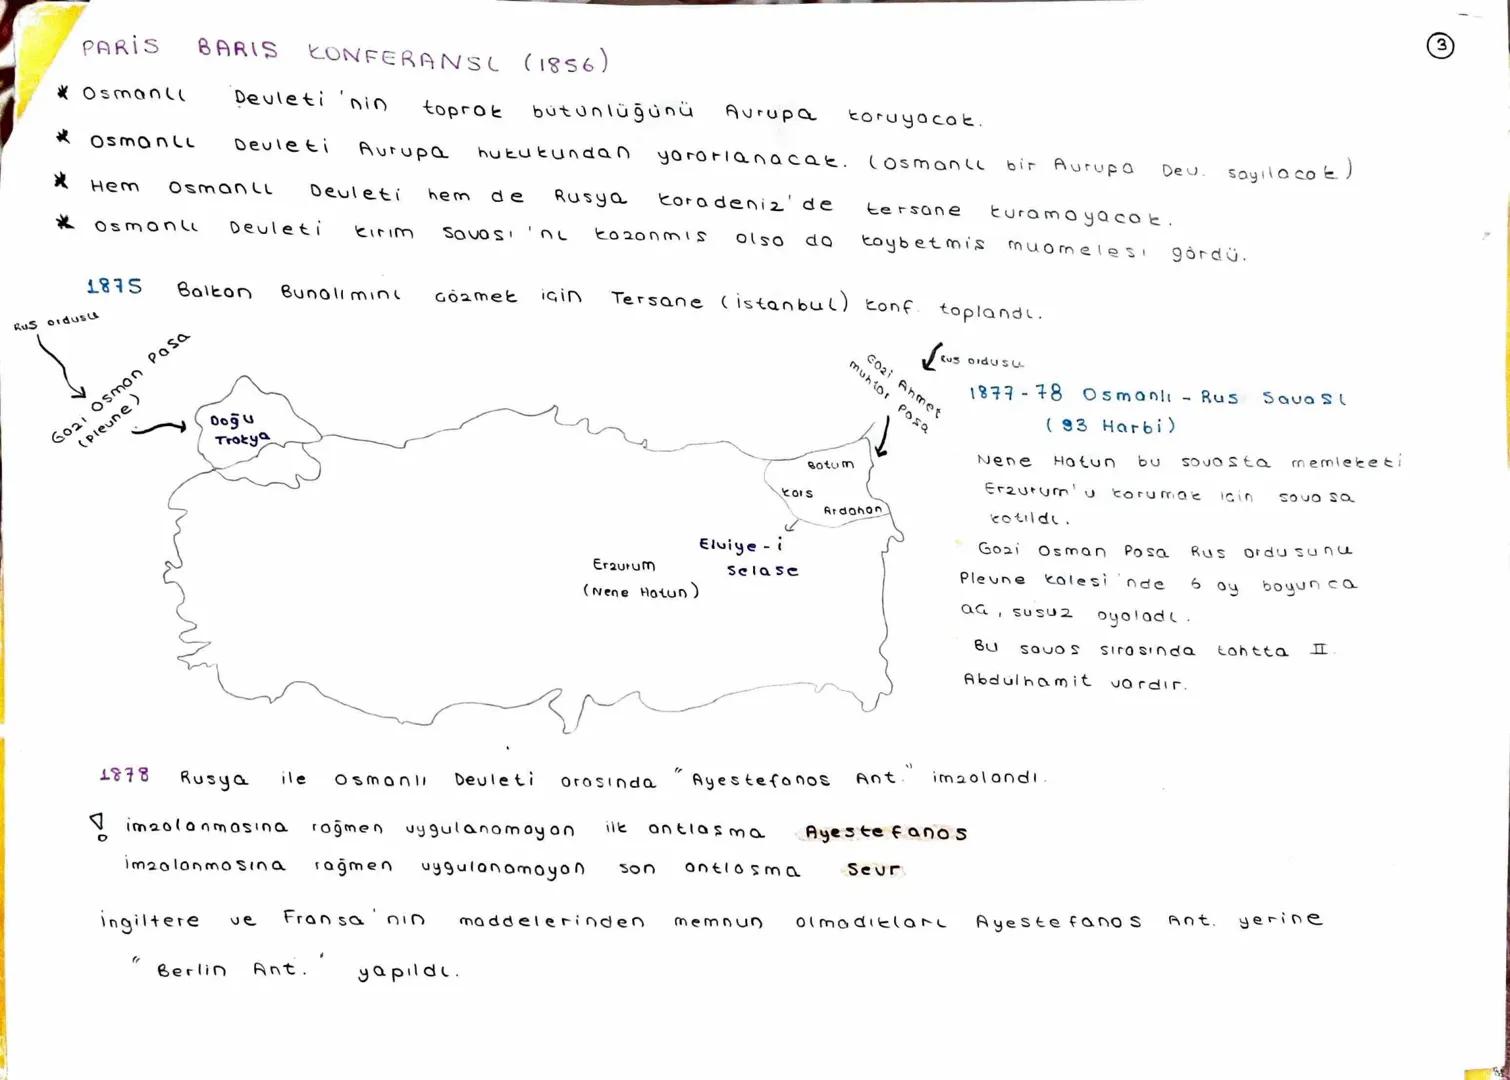 3
PARİS BARIŞ KONFERANSI (1856)
* Osmanlı Devleti'nin toprak bütünlüğünü Avrupa koruyacak.
* Osmanlı Devleti Avrupa hukukundan yararlanacak. (Osmanlı bir Avrupa Dev. sayılacak)
* Hem Osmanlı Devleti hem de Rusya Karadeniz'de tersane kuramayacak.
* Osmanlı Devleti Kırım Savaşı'nı kazanmış olsa da kaybetmiş muamelesi gördü.
1875 Balkan Bunalımını çözmek için Tersane (İstanbul) Konf. toplandı.
Rus ordusu
Gazi Osman Paşa
(Plevne)
Doğu
Trakya
Rus ordusu
Gazi Ahmet
Muhtar Paşa
Batum
Kars
Ardahan
Elviye-i
Selase
Erzurum
(Nene Hatun)
1877-78 Osmanlı - Rus Savaşı
(93 Harbi)
Nene Hatun bu savaşta memleketi
Erzurum'u korumak için savaşa
katıldı.
Gazi Osman Paşa Rus ordusunu
Plevne kalesi'nde 6 ay boyunca
aç, susuz oyaladı.
Bu savaş sırasında tahtta II.
Abdulhamit vardır.
1878 Rusya ile Osmanlı Devleti arasında "Ayestefanos Ant." imzalandı.
! imzalanmasına rağmen uygulanamayan ilk antlaşma Ayestefanos
imzalanmasına rağmen uygulanamayan son antlaşma Sevr
İngiltere ve Fransa'nın maddelerinden memnun olmadıkları Ayestefanos Ant. yerine
"Berlin Ant." yapıldı.